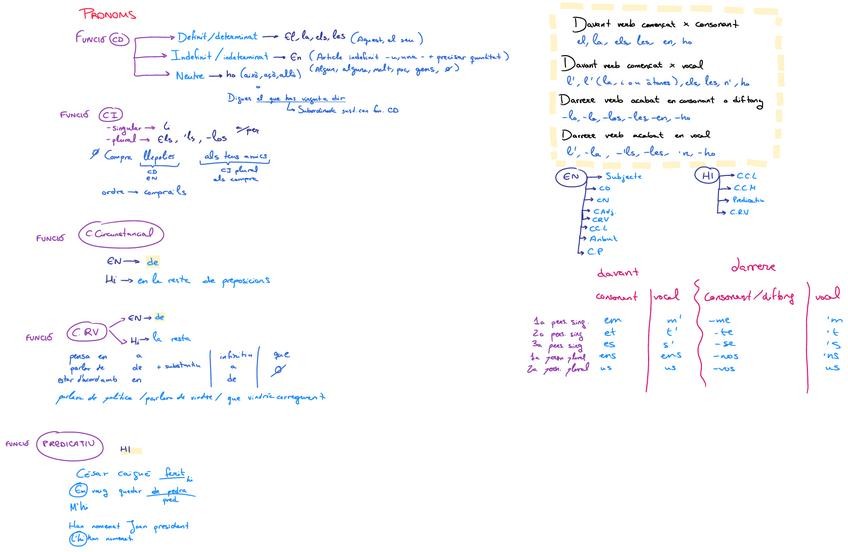 PRONOMS
FUNCIÓ CD
Definit/determinat → El, la, els, les (Aquest, el seu)
Indefinit/indeterminat → En (Article indefinit -u, una - + precisar quantitat)
(Algun, alguna, molt, poc, gens, Ø)
Neutre → ho (això, açò, allò)
Digues el que has vingut a dir
↳ Subordinada sust. con fun. CD
FUNCIÓ CI
-singular → li
-plural → Els, 'ls, -los
a/per
Ø Compra llepolies als teus amics
CD CI plural
EN als compra
ordre → compra'ls
FUNCIÓ C.Circumstancial
EN → de
Hi → en la resta de preposicions
FUNCIÓ C.RV
EN → de
Hi → la resta
pensa en a infinitiu que
parlar de de + substantiu a Ø
estar d'acord amb en de
parlava de política / parlava de vindre / que vindria carregament
FUNCIÓ PREDICATIU HI
César caigué ferit
hi
Em vaig quedar de pedra
pred.
M'hi
Han nomenat Joan president
L'hi han nomenat
Davant verb començat x consonant
el, la, els, les, en, ho
Davant verb començat x vocal
l', l' (la, i o u àtones), els, les, n', ho
Darrere verb acabat en consonant o diftong
-lo, -la, -los, -les -en, -ho
Darrere verb acabat en vocal
'l, -la, -'ls, -les, 'n, -ho
EN
Subjecte
CD
CN
CAdj.
CRV
C.C.L
Atribut
C.P
HI
C.C.L
C.C.M
Predicatiu
C.RV
davant darrere
consonant vocal Consonant/diftong vocal
1a pers sing em m' -me 'm
2a pers sing et t' -te 't
3a pers sing es s' -se 's
1a pers plural ens ens -nos 'ns
2a pers. plural us us -vos us